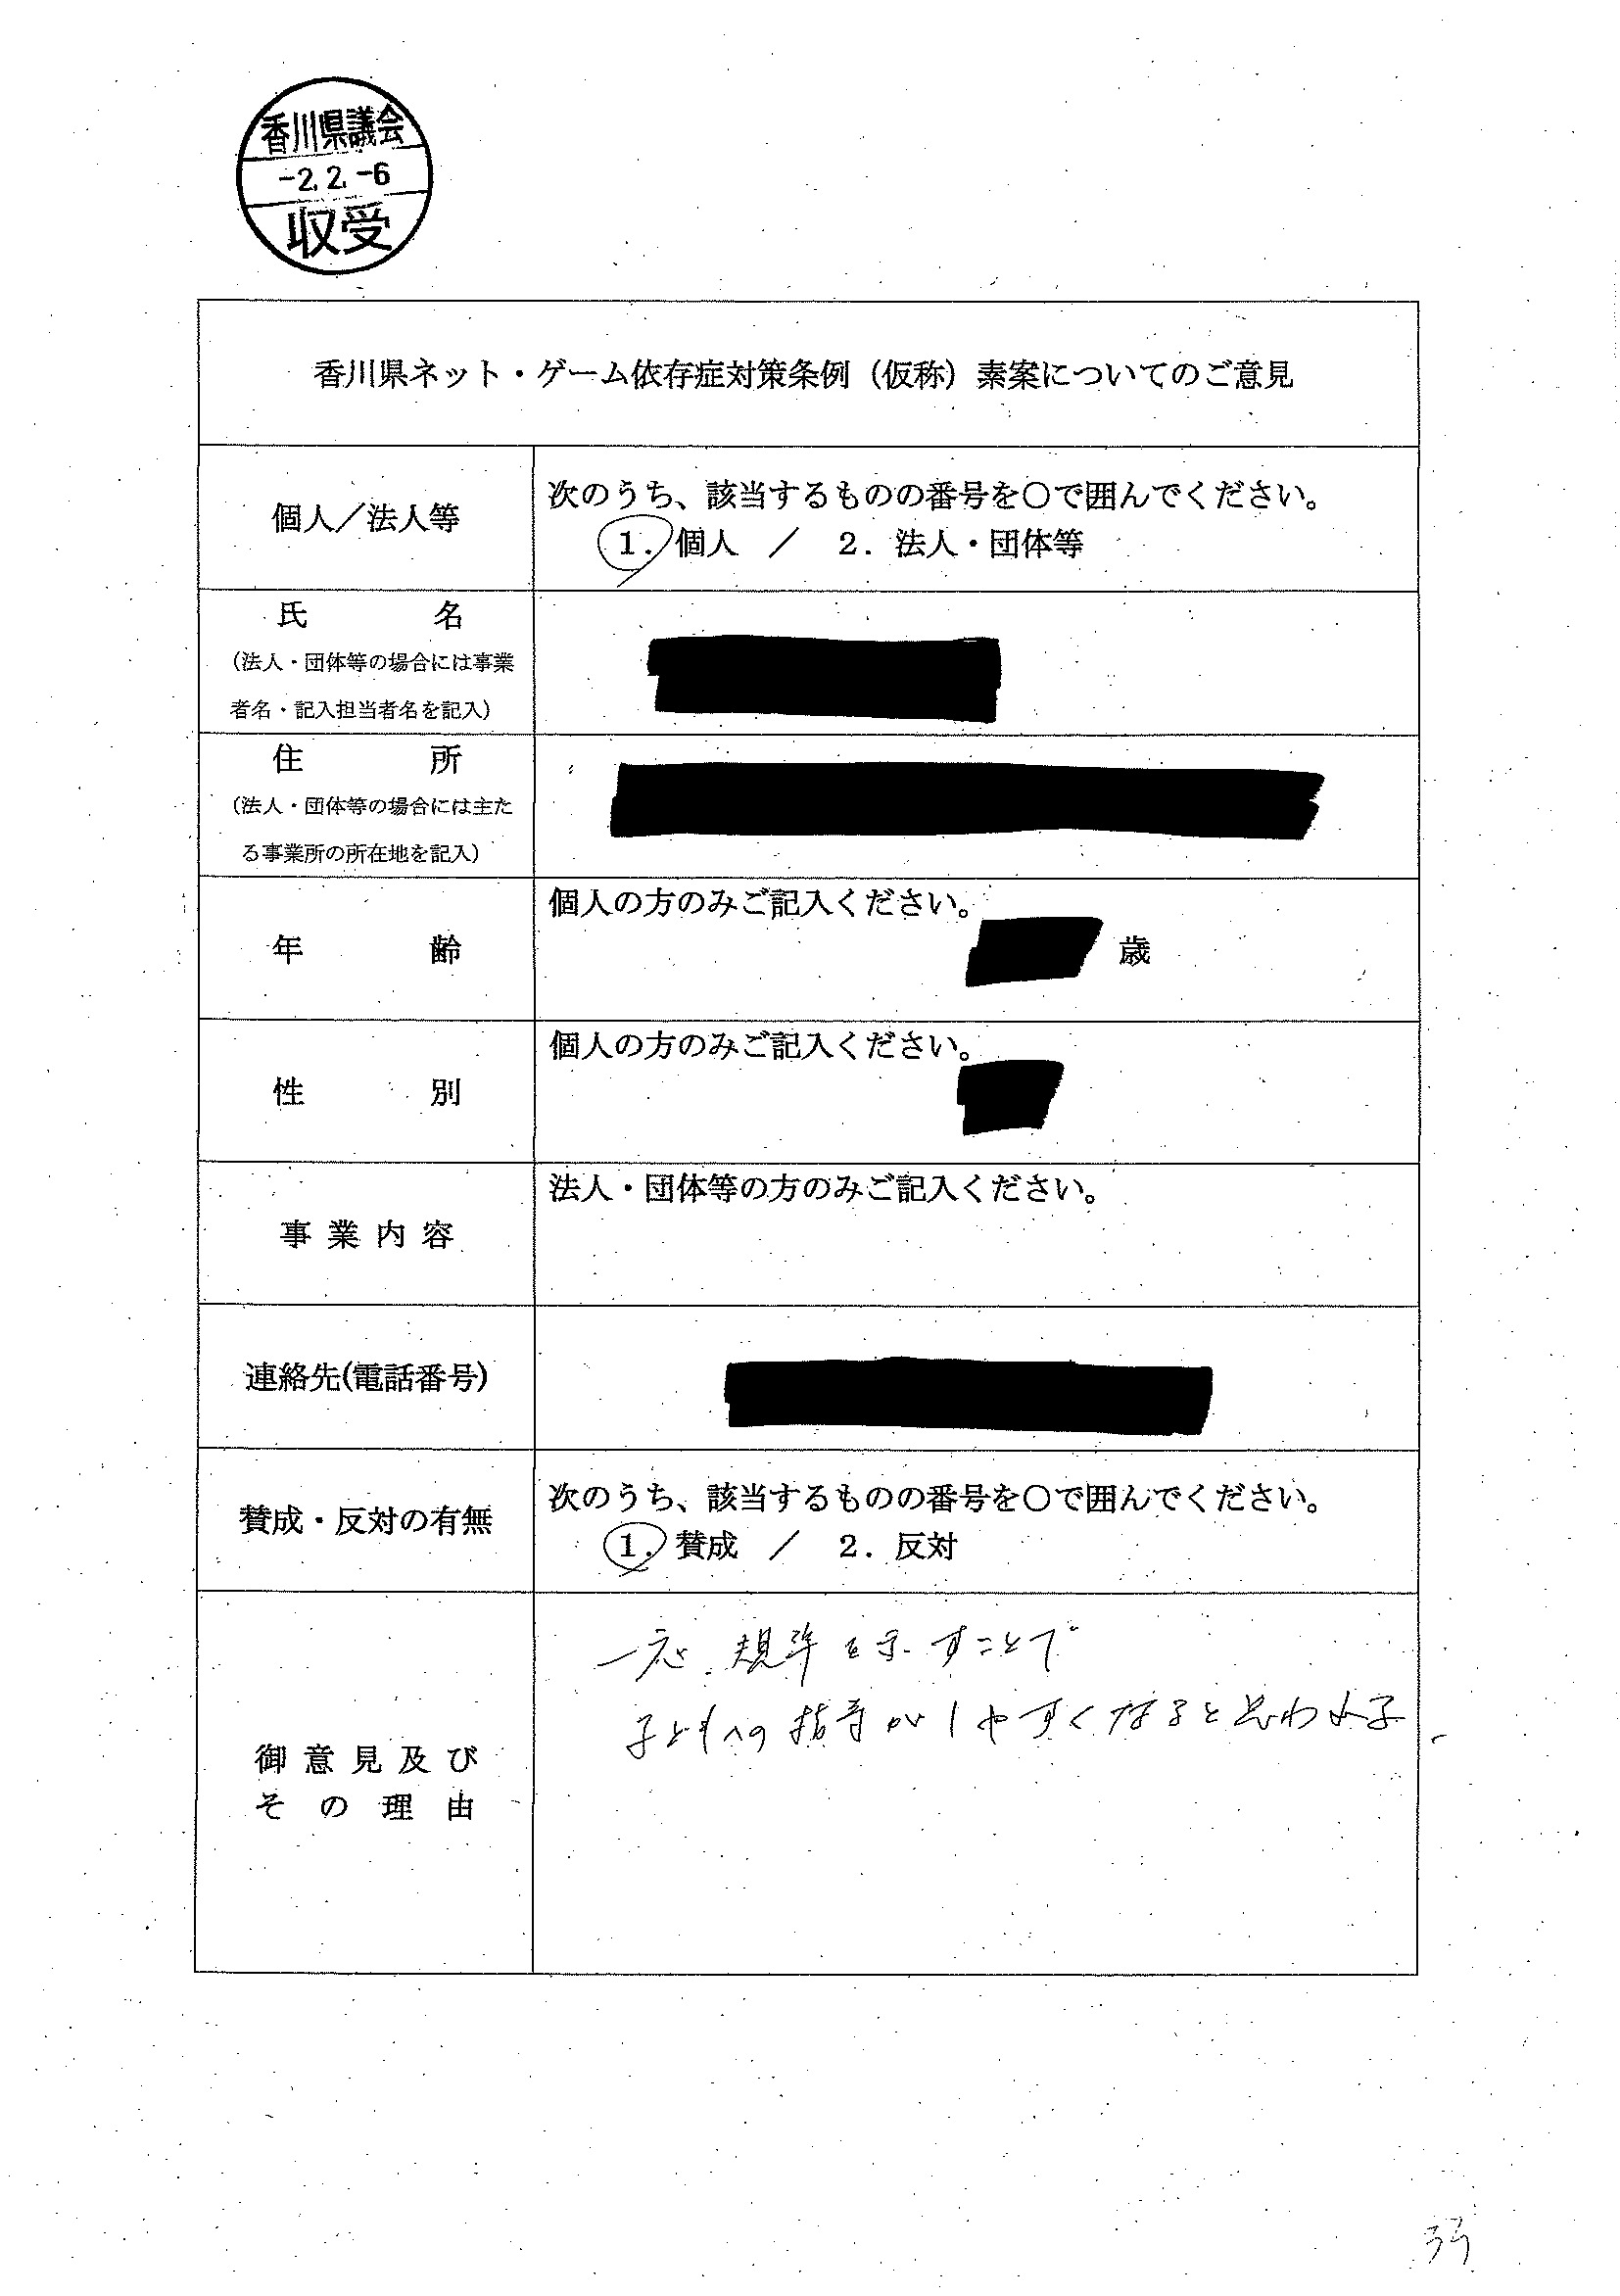 香川県議会
-2.2.-6
収受
香川県ネット・ゲーム依存症対策条例（仮称）素案についてのご意見
個人／法人等
次のうち、該当するものの番号を○で囲んでください。
1．個人　／　2．法人・団体等
氏　名
（法人・団体等の場合には事業
者名・記入担当者名を記入）
住　所
（法人・団体等の場合には主た
る事業所の所在地を記入）
年　齢
個人の方のみご記入ください。
歳
性　別
個人の方のみご記入ください。
事業内容
法人・団体等の方のみご記入ください。
連絡先(電話番号)
賛成・反対の有無
次のうち、該当するものの番号を○で囲んでください。
1．賛成　／　2．反対
御意見及び
その理由
一応、規準を示すことで
子どもへの指導がしやすくなると思われる